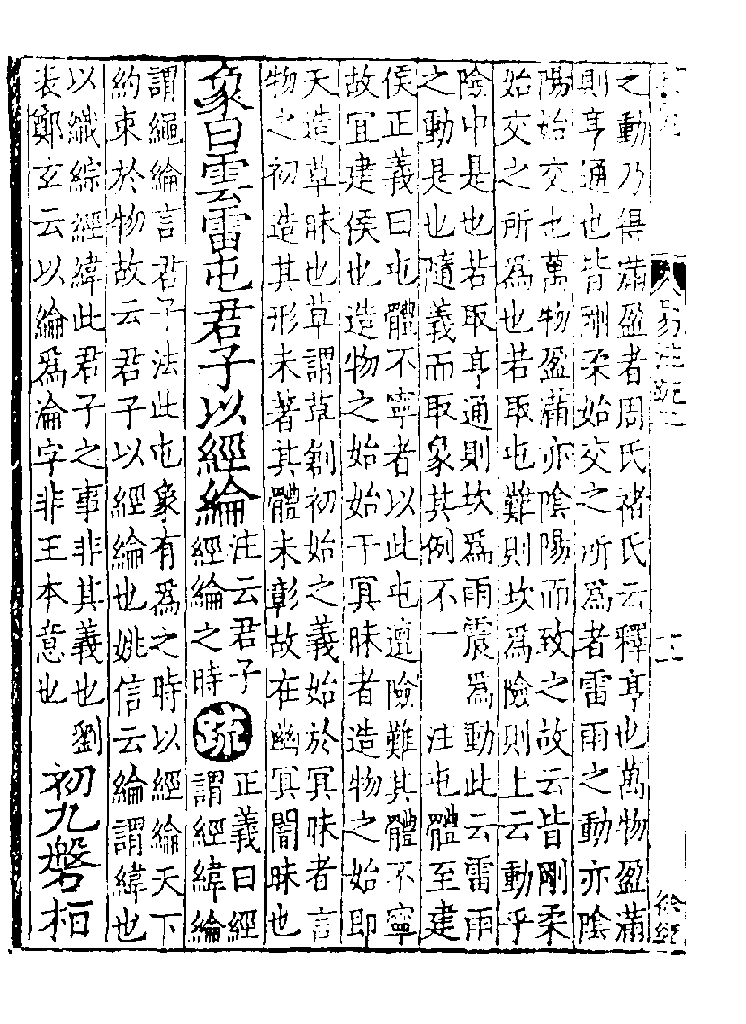 易注疏
二
之動乃得滿盈者周氏褚氏云釋亨也萬物盈滿
則亨通也皆剛柔始交之所爲者雷雨之動亦陰
陽始交也萬物盈滿亦陰陽而致之故云皆剛柔
始交之所爲也若取屯難則坎爲險則上云動乎
險中是也若取亨通則坎爲雨震爲動此云雷雨
之動是也隨義而取象其例不一　注屯體至建
侯正義曰屯體不寧者以此屯邅險難其體不寧
故宜建侯也造物之始始于冥昧者造物之始即
天造草昧也草謂草創初始之義始於冥昧者言
物之初造其形未著其體未彰故在幽冥闇昧也
象曰雲雷屯君子以經綸
注云君子
經綸之時
疏
正義曰經
謂經緯綸
謂繩綸言君子法此屯象有爲之時以經綸天下
約束於物故云君子以經綸也姚信云綸謂緯也
以織綜經緯此君子之事非其義也劉
表鄭玄云以綸爲淪字非王本意也
初九磐桓